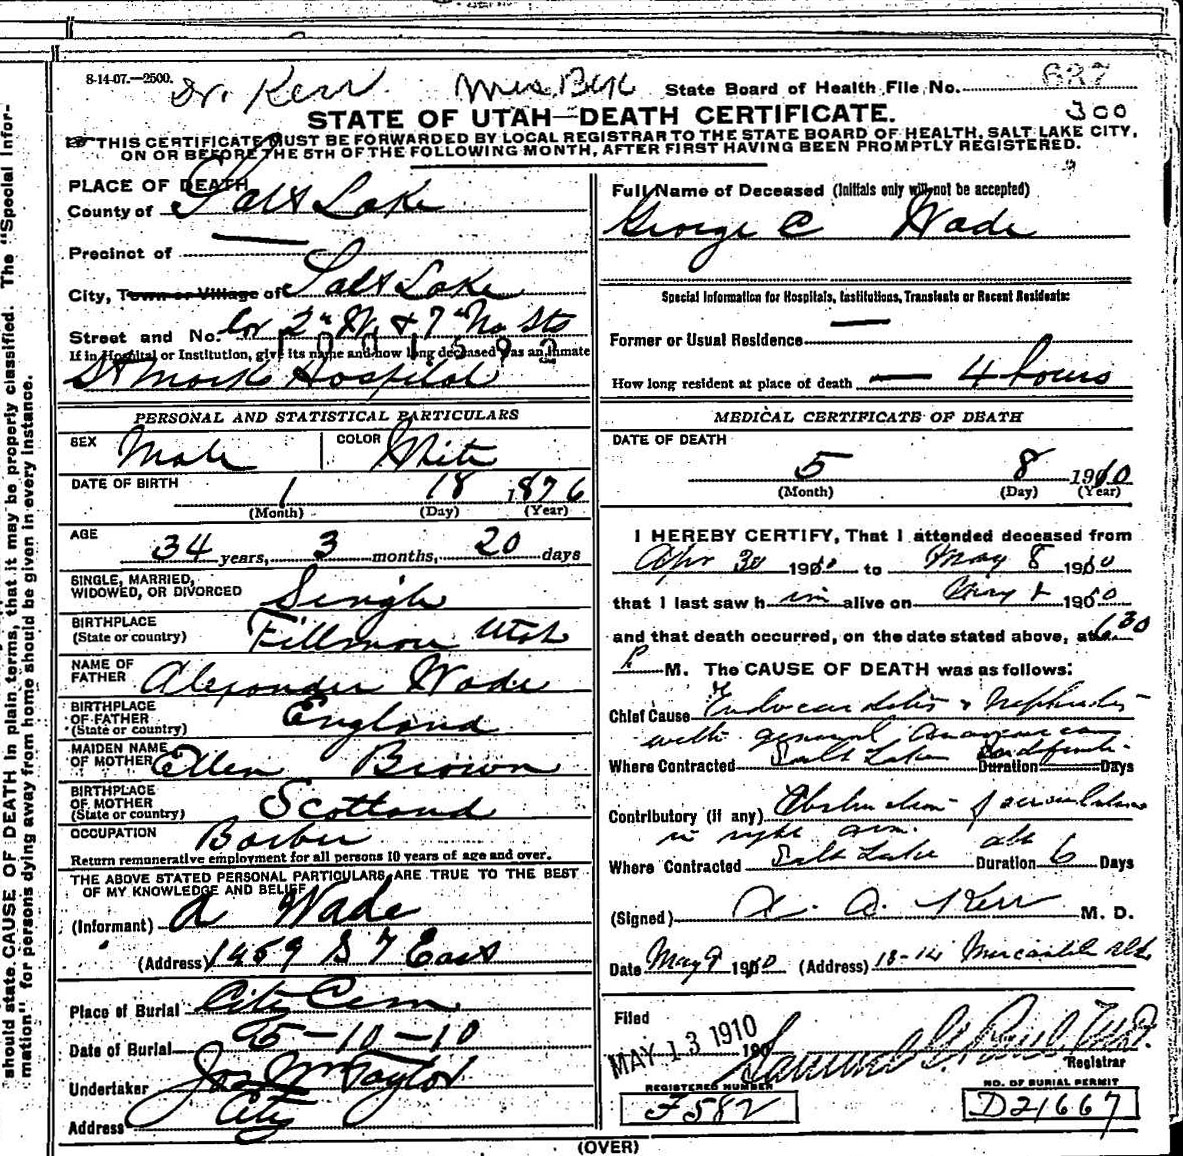 8-14-07.—2500.
Dr. Kerr
State Board of Health File No. 637
STATE OF UTAH—DEATH CERTIFICATE.
300
THIS CERTIFICATE MUST BE FORWARDED BY LOCAL REGISTRAR TO THE STATE BOARD OF HEALTH, SALT LAKE CITY,
ON OR BEFORE THE 5TH OF THE FOLLOWING MONTH, AFTER FIRST HAVING BEEN PROMPTLY REGISTERED.
PLACE OF DEATH
County of Salt Lake
Precinct of
City, Town or Village of Salt Lake
Street and No. Cor 2" W. & 7" No Sts
If in Hospital or Institution, give its name and how long deceased was an inmate
St Mark Hospital
PERSONAL AND STATISTICAL PARTICULARS
SEX Male COLOR White
DATE OF BIRTH 1 18 1876
(Month) (Day) (Year)
AGE 34 years, 3 months, 20 days
SINGLE, MARRIED,
WIDOWED, OR DIVORCED Single
BIRTHPLACE
(State or country) Fillmore Utah
NAME OF
FATHER Alexander Wade
BIRTHPLACE
OF FATHER
(State or country) England
MAIDEN NAME
OF MOTHER Ellen Brown
BIRTHPLACE
OF MOTHER
(State or country) Scotland
OCCUPATION Barber
Return remunerative employment for all persons 10 years of age and over.
THE ABOVE STATED PERSONAL PARTICULARS ARE TRUE TO THE BEST
OF MY KNOWLEDGE AND BELIEF
(Informant) A Wade
(Address) 1459 S 7 East
Place of Burial City Cem
Date of Burial 5-10-10
Undertaker Jos Wm Taylor
Address City
Full Name of Deceased (Initials only will not be accepted)
George C Wade
Special Information for Hospitals, Institutions, Transients or Recent Residents:
Former or Usual Residence
How long resident at place of death — 4 hours
MEDICAL CERTIFICATE OF DEATH
DATE OF DEATH
5 8 1910
(Month) (Day) (Year)
I HEREBY CERTIFY, That I attended deceased from
Apr 30 1910 to May 8 1910
that I last saw him alive on May 8 1910
and that death occurred, on the date stated above, at 6.30
P M. The CAUSE OF DEATH was as follows:
Chief Cause Endocarditis & Nephritis
with general Anasarca
Where Contracted Salt Lake Duration Indefinite Days
Contributory (if any) Obstruction of circulation
in right arm.
Where Contracted Salt Lake Duration abt 6 Days
(Signed) Kerr M. D.
Date May 9 1910 (Address) Mercantile
Filed
MAY 13 1910 190
Samuel G. Paul
Registrar
REGISTERED NUMBER
F582
NO. OF BURIAL PERMIT
D21667
(OVER)
should state CAUSE OF DEATH in plain terms, that it may be properly classified. The "Special Infor-
mation" for persons dying away from home should be given in every instance.